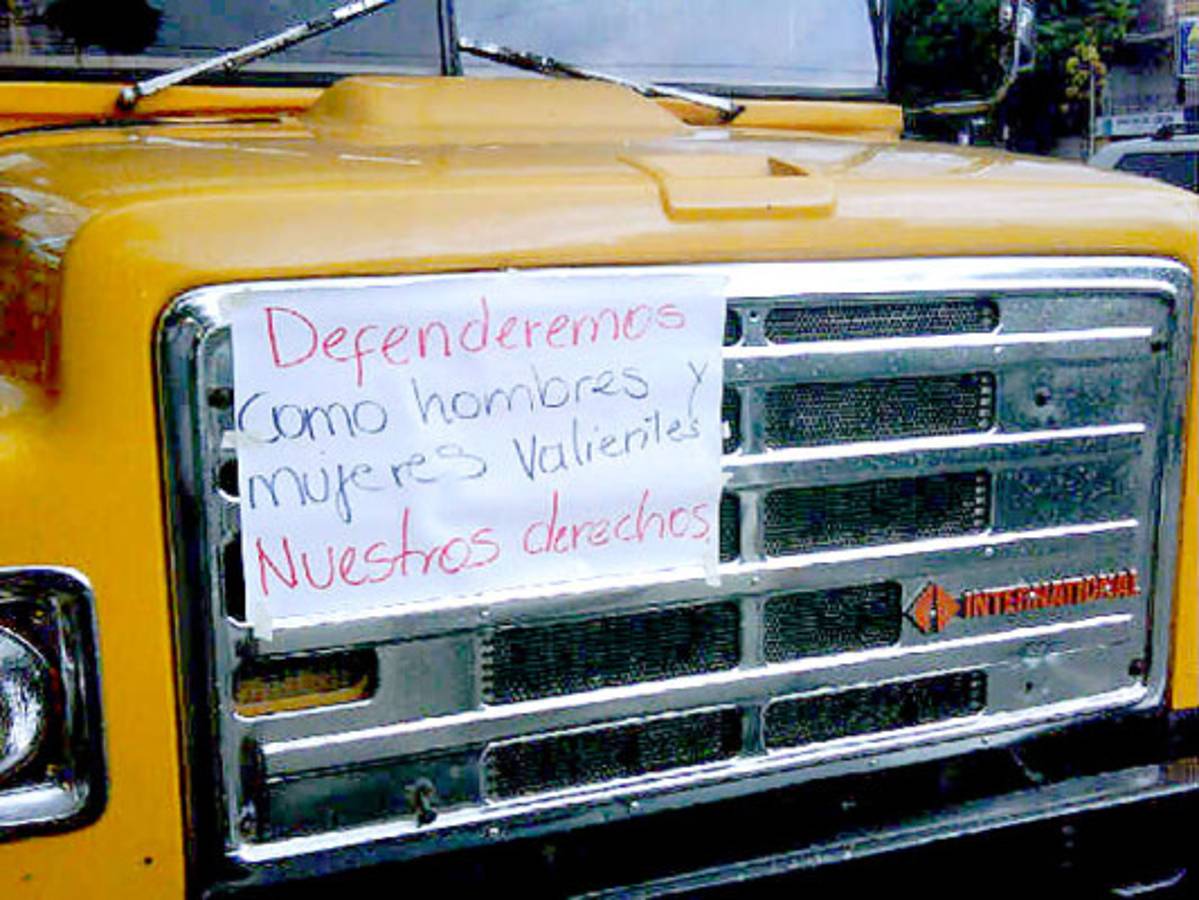 Defenderemos
Como hombres y
mujeres Valientes
Nuestros derechos.
INTERNATIONAL